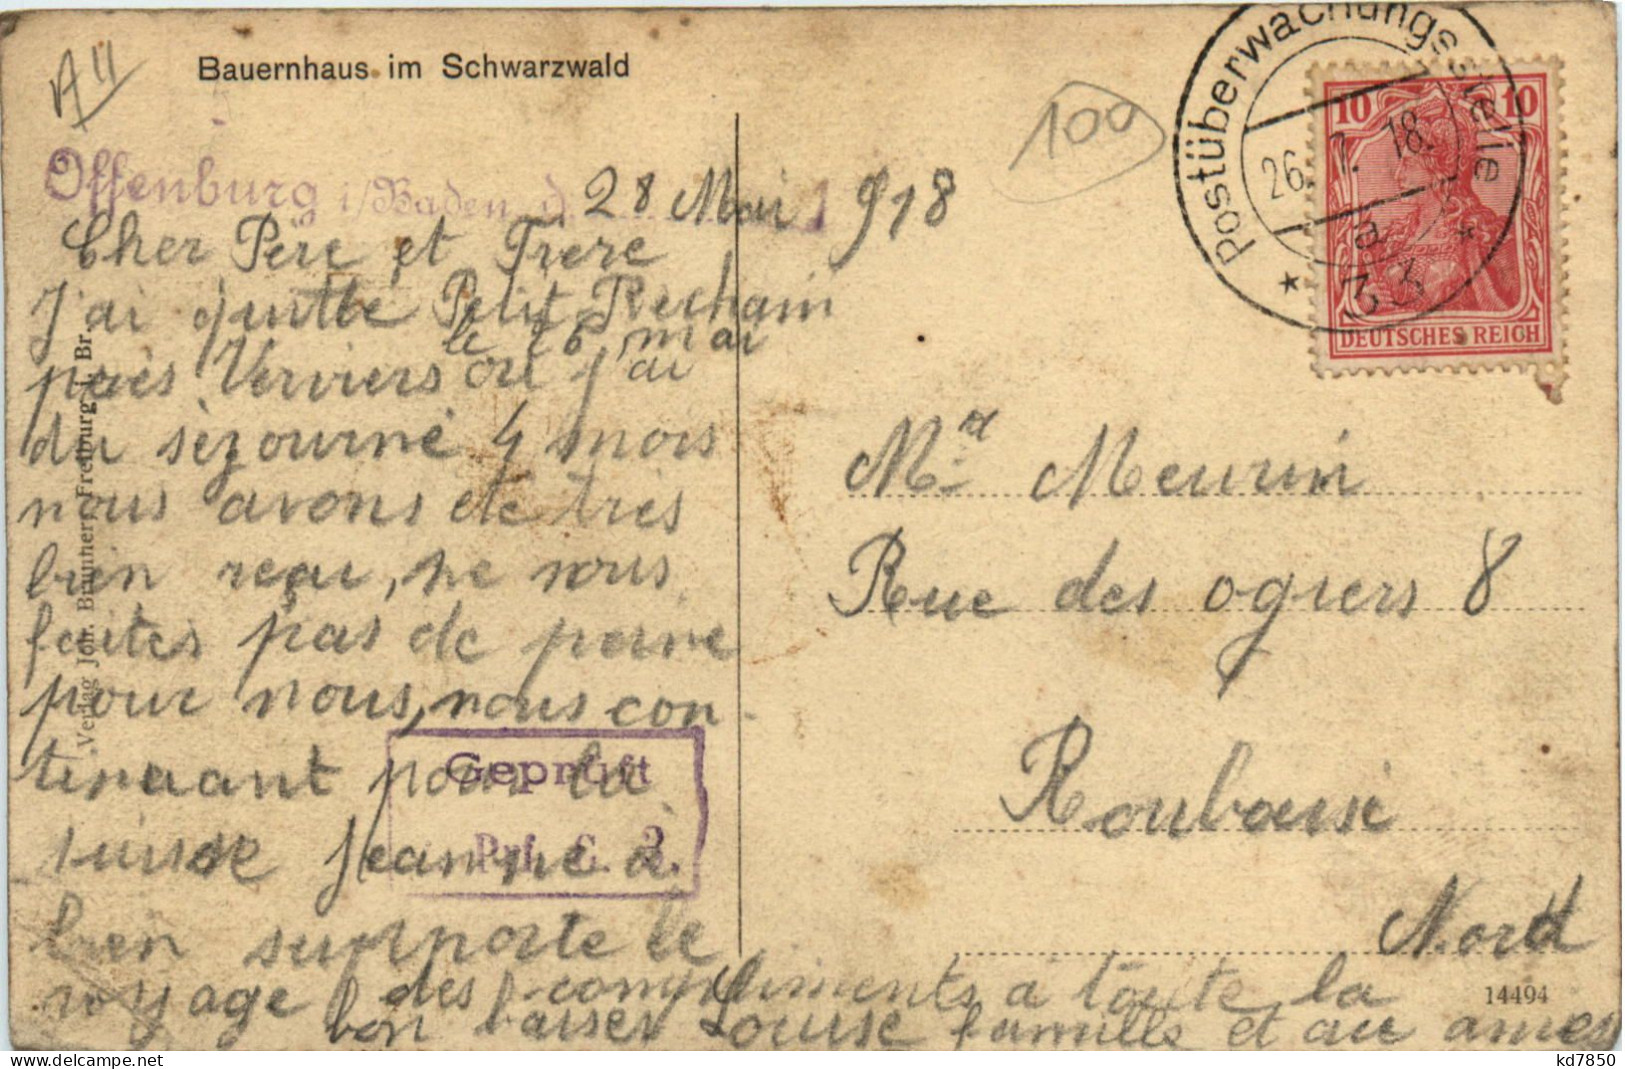 A 11
Bauernhaus im Schwarzwald
100
Postüberwachungsstelle
26. 7. 18.
a
33
10 10
DEUTSCHES REICH
Offenburg i/Baden, d. 28 Mai 1 918
Cher Père et Frere
J'ai quitté Petit-Rechain
le 26 mai
près Verviers ou j'ai
du séjourné 4 mois
nous avons été très
bien reçu, ne nous
faites pas de peine
pour nous, nous con
tinuant pour la
suisse Jeanne à
bien supporte le
voyage des compliments a toute la
bon baiser Louise famille et au amies
Geprüft
Prf. C. 3.
Mr Meurin
Rue des ogiers 8
Roubaix
Nord
14494
Verlag Joh. Brunner, Freiburg i. Br.
kd7850